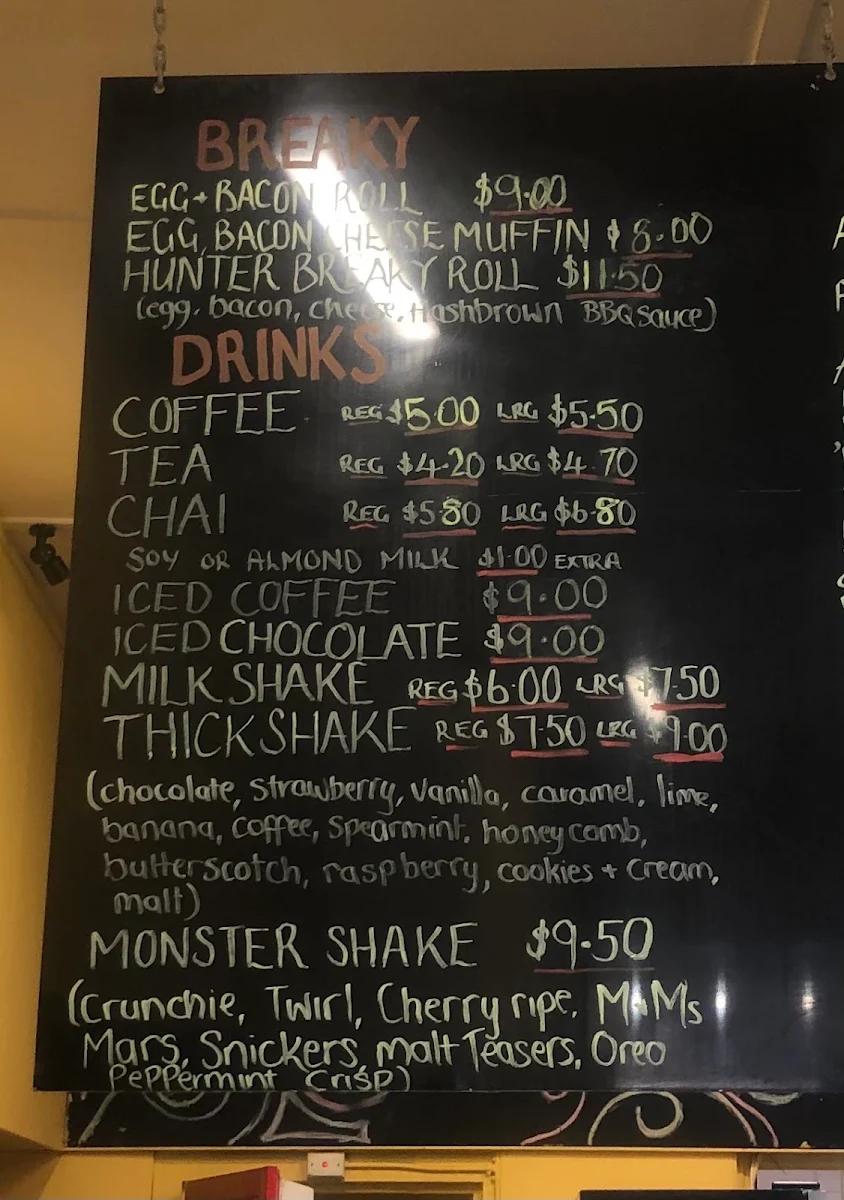 BREAKY
EGG + BACON ROLL $9.00
EGG, BACON CHEESE MUFFIN $8.00
HUNTER BREAKY ROLL $11.50
(egg, bacon, cheese, Hashbrown BBQ sauce)
DRINKS
COFFEE REG $5.00 LRG $5.50
TEA REG $4.20 LRG $4.70
CHAI REG $5.80 LRG $6.80
SOY OR ALMOND MILK $1.00 EXTRA
ICED COFFEE $9.00
ICED CHOCOLATE $9.00
MILKSHAKE REG $6.00 LRG $7.50
THICKSHAKE REG $7.50 LRG $9.00
(chocolate, strawberry, vanilla, caramel, lime,
banana, coffee, spearmint, honeycomb,
butterscotch, raspberry, cookies + cream,
malt)
MONSTER SHAKE $9.50
(Crunchie, Twirl, Cherry ripe, M&Ms
Mars, Snickers, malt Teasers, Oreo
PePPermint Crisp)